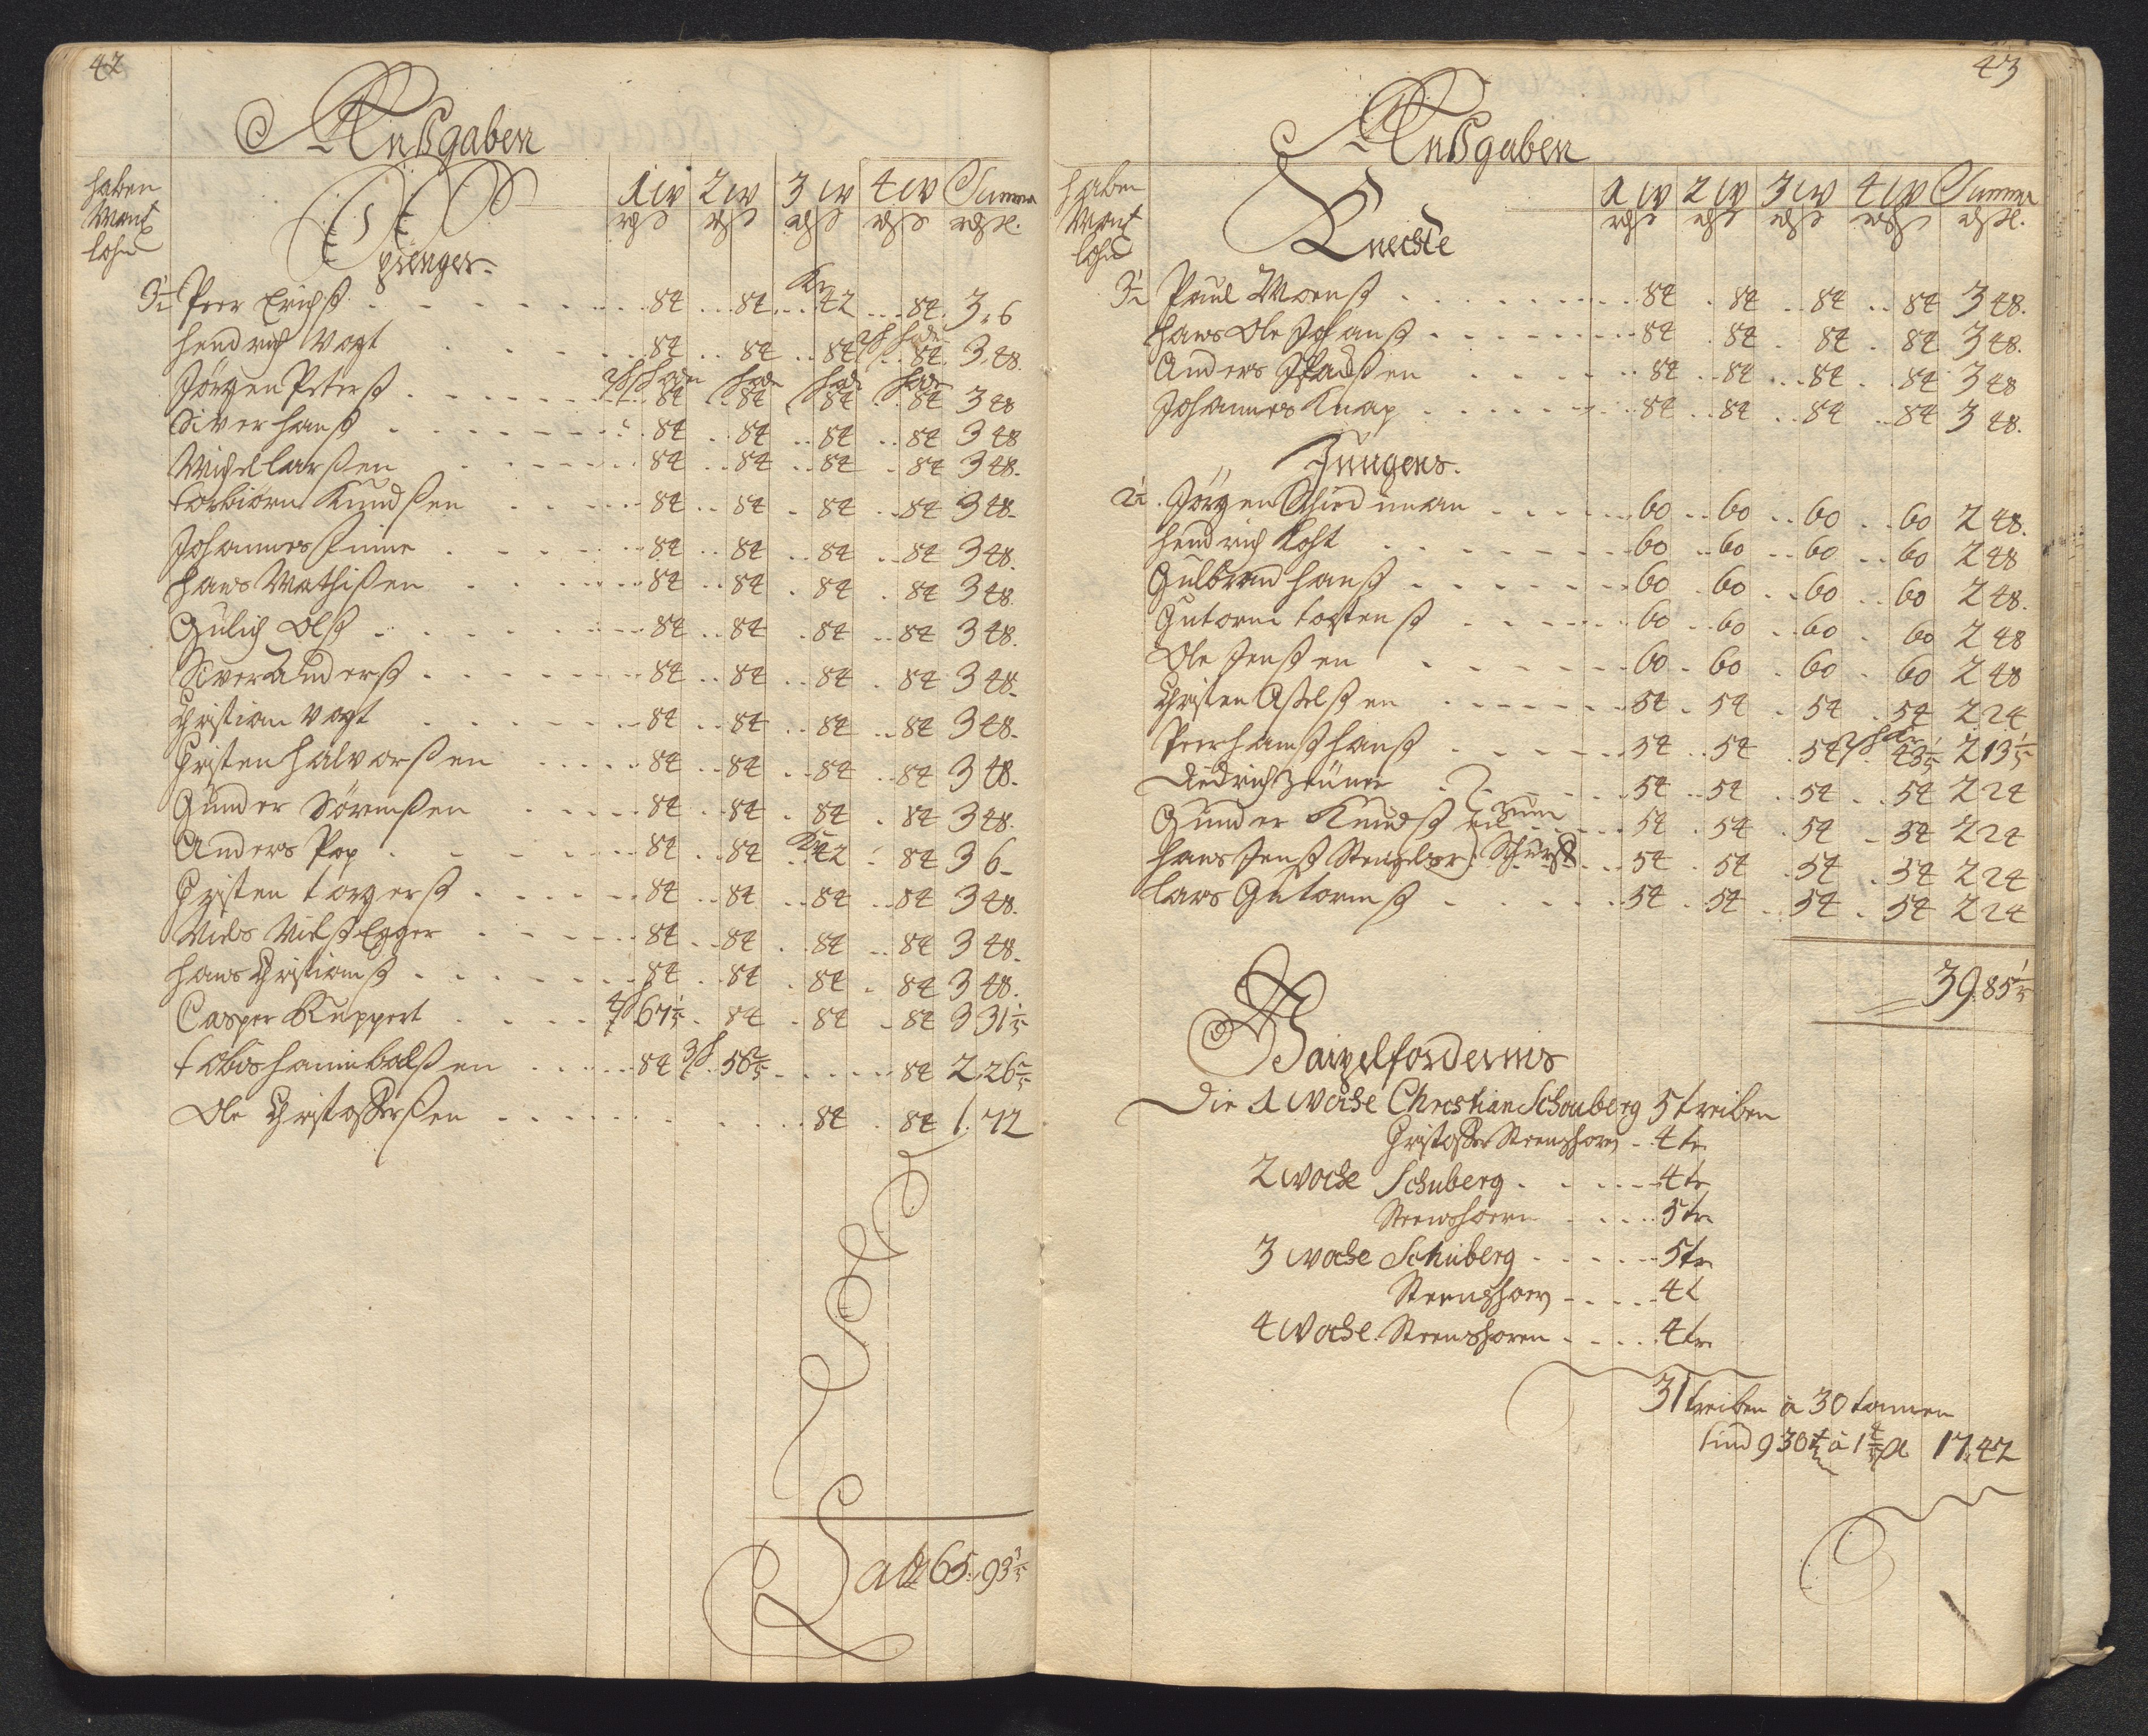 42
Außgaben
haben
Mont
lohn
Spienger
1 W 2 W 3 W 4 W Summa
3½ Peer Erichß . . . 84 . . 84 . . Kr 42 . . 84 . 3. 6
Hendrich Vogt . . . 84 . . 84 . . 84 . . 84 3. 48.
Jörgen Peterß . . . 84 84 84 84 3 48
Siver Hanß . . . 84 . . 84 . . 84 . . 84 3 48
Michel Larßen . . . 84 . . 84 . . 84 . 84 3 48.
Torbiörn Knudßen . . . 84 . . 84 . 84 . . 84 3 48.
Johannes . . . 84 . . 84 . . 84 . . 84 3 48.
Hans Mathißen . . . 84 . . 84 . 84 . 84 3 48.
Gulich Olß . . . 84 . . 84 . 84 . . 84 3 48.
Siver Anderß . . . 84 . . 84 . . 84 . 84 3 48.
Christian Vogt . . . 84 . . 84 . . 84 . . 84 3 48.
Christen Halvorßen . . . 84 . . 84 . . 84 . . 84 3 48.
Gunder Sörenßen . . . 84 . . 84 . 84 . 84 3 48.
Anders Pop . . . 84 . . 84 . . Kr 42 . 84 3 6
Christen Torgerß . . . 84 . . 84 . . 84 . . 84 3 48.
Niels Nielß Egger . . . 84 . . 84 . 84 . . 84 3 48.
Hans Christianß . . . 84 . . 84 . 84 . 84 3 48.
Casper Ruppert . . . 4ß 67 1/5 . 84 . 84 . 84 3 31 1/5
Tobias Hannibalßen . . . 84 3ß 58 2/5 . . . 84 2. 26 2/5
Ole Christofferßen . . . 84 . 84 1. 72
Lat 65. 93 3/5
43
Außgaben
haben
Mont
lohn
Knechte
1 W 2 W 3 W 4 W Summa
3½ Paul Moenß . . . 84 . 84 . . 84 . . 84 3 48.
Hans Ole Johanß . . . 84 . 84 . 84 . 84 3 48.
Anders . . . 84 . . 84 . . 84 . 84 3 48
Johannes Knap . . . 84 . . 84 . . 84 . . 84 3 48.
Jungens.
2½ Jörgen Schiedman . . . 60 . . 60 . . 60 . . 60 2 48.
Hendrich Koht . . . 60 . . 60 . . 60 . . 60 2 48
Gulbrand Hanß . . . 60 . 60 . . 60 . . 60 2 48.
Gutorm Tostenß . . . 60 . . 60 . . 60 . 60 2 48
Ole Jenßen . . . 60 . 60 . 60 . 60 2 48
Christen Aßelßen . . . 54 . 54 . 54 . 54 2 24
Peer Hanß Hanß . . . 54 . . 54 . 54 43 1/5 2 13 1/5
Diedrich Zeuner . . . 54 . . 54 . 54 . . 54 2 24
Gunder Knudß . . . 54 . 54 . 54 . 54 2 24
Hans Jenß Stengeler . . . 54 . 54 . 54 . 54 2 24
Lars Gutormß . . . 54 . 54 . . 54 . 54 2 24
39. 85 1/5
Gaipelfordernis
Die 1 Woche Christian Schouberg 5 treiben
Christoffer Steenshorn . 4 tr
2 Woche Schuberg . . . 4 tr
Steenshoren . . . 5 tr
3 Woche Schuberg . . . 5 tr
Steenshorn . . . 4 t
4 Woche Steenshoren . . . 4 tr
31 treiben à 30 tonnen
sind 930 t à 1 4/5 ß 17. 42